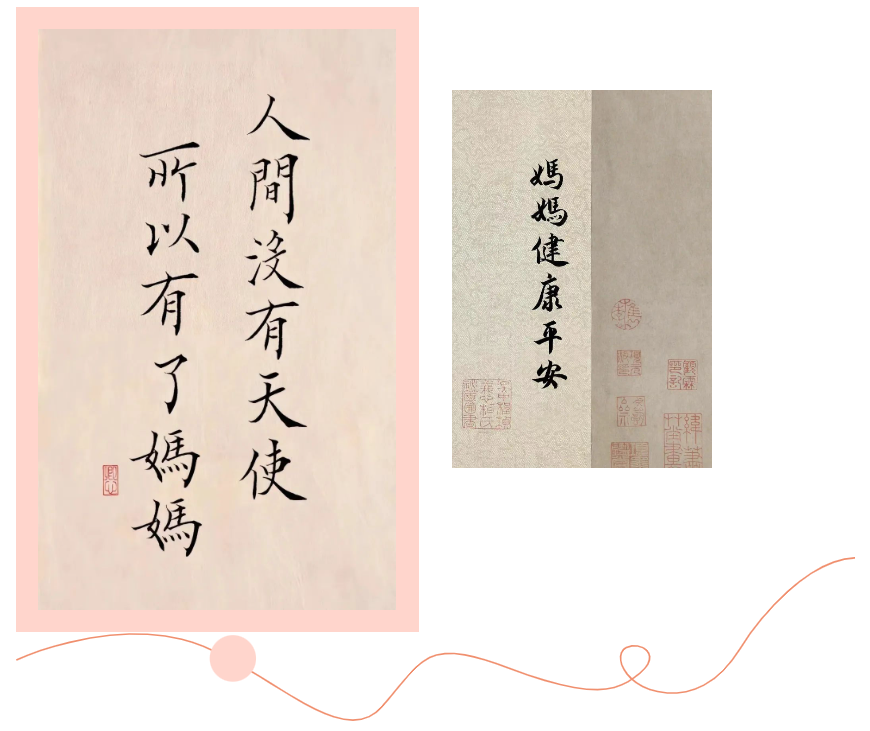 人間沒有天使
所以有了媽媽
媽媽健康平安